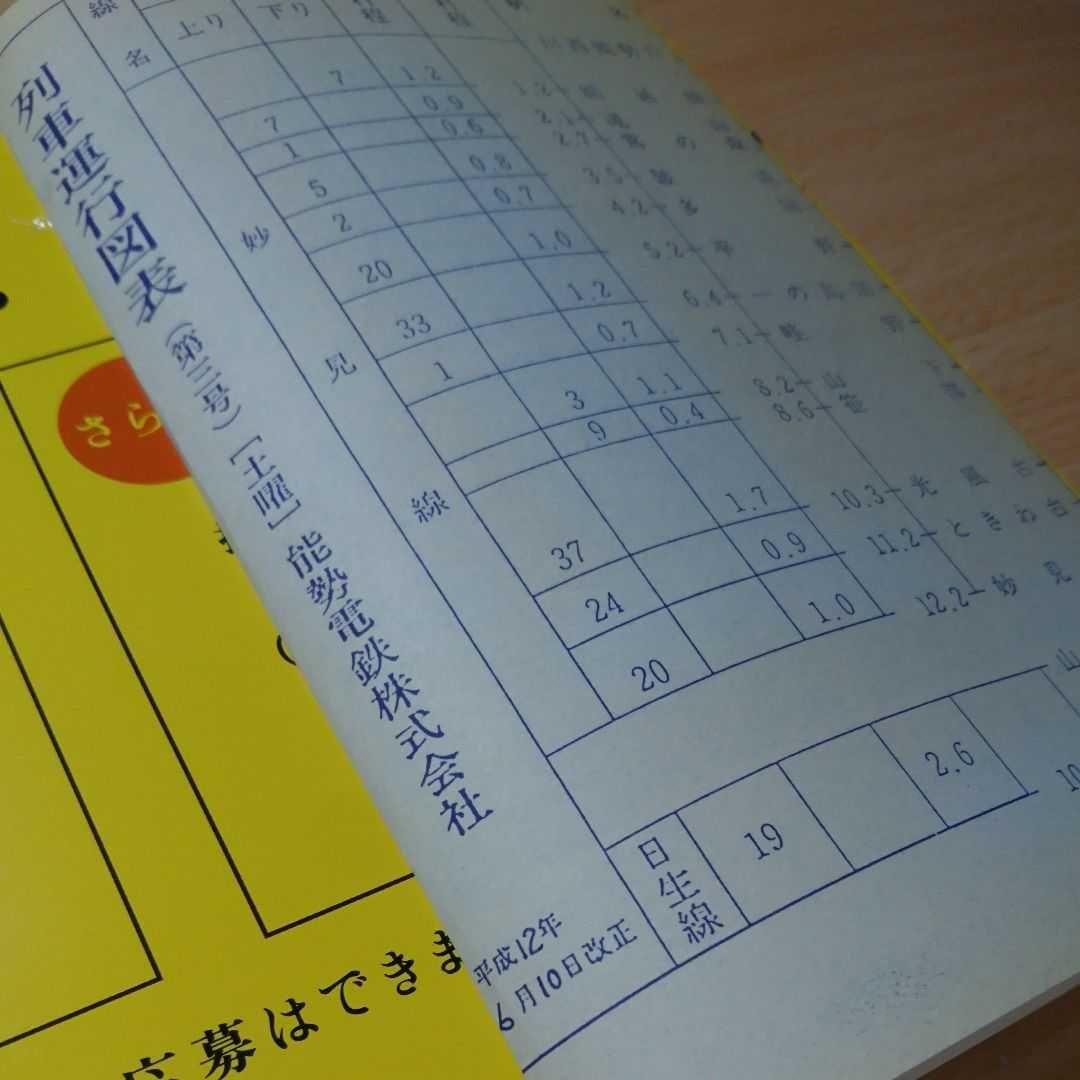 列車運行図表（第三号）［土曜］能勢電鉄株式会社
平成12年
6月10日改正
線名 上り 下り
妙見線
7 1.2 1.2
7 0.9 2.1
1 0.6 2.7
5 0.8 3.5
2 0.7 4.2
20 1.0 5.2 平野
33 1.2 6.4 一の鳥居
1 0.7 7.1 畦野
3 1.1 8.2 山下
9 0.4 8.6 笹部
37 1.7 10.3 光風台
24 0.9 11.2 ときわ台
20 1.0 12.2 妙見
日生線 19 2.6 山
10
さら
応募はできま